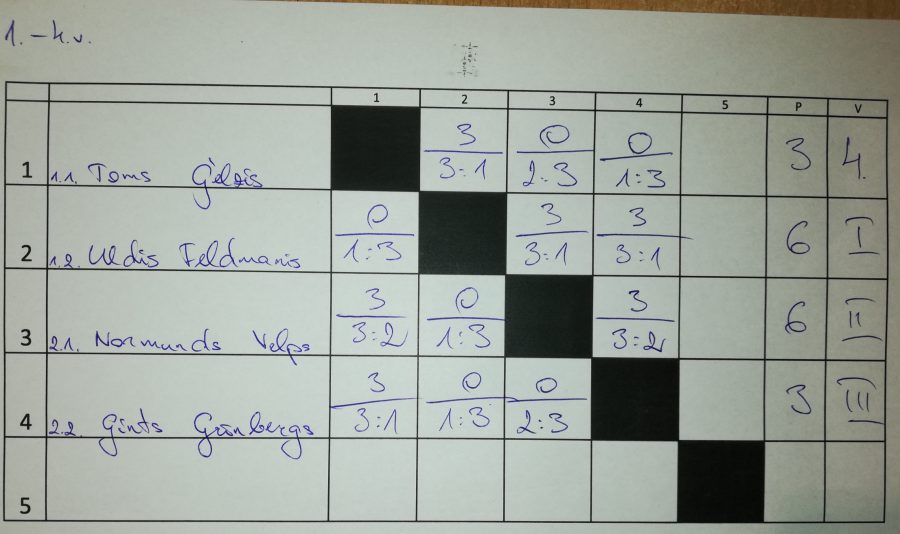 1.-4.v.
1 2 3 4 5 P V
1 1.1. Toms Ģelzis 3 3:1 0 2:3 0 1:3 3 4.
2 1.2. Uldis Feldmanis 0 1:3 3 3:1 3 3:1 6 I
3 2.1. Normunds Velps 3 3:2 0 1:3 3 3:2 6 II
4 2.2. Gints Grīnbergs 3 3:1 0 1:3 0 2:3 3 III
5